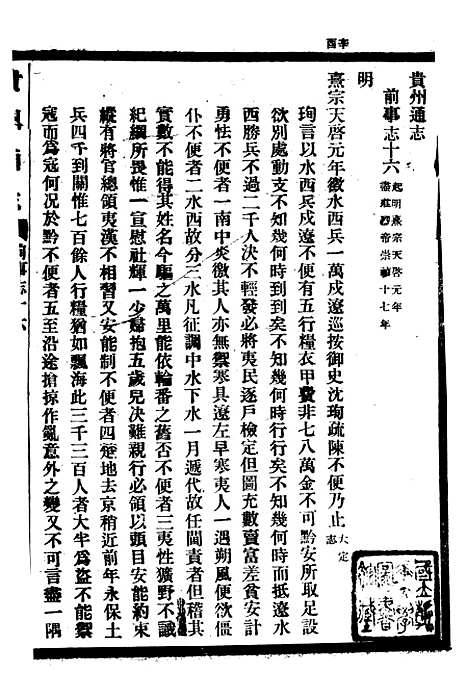 貴州通志
前事志十六 起明熹宗天啓元年盡莊烈帝崇禎十七年
明
熹宗天啓元年徵水西兵一萬戍遼巡按御史沈珣疏陳不便乃止 大定志
珣言以水西兵戍遼不便有五行糧衣甲費非七八萬金不可黔安所取足設
欲別處動支不知幾何時到到矣不知幾何時行行矣不知幾何時而抵遼水
西勝兵不過二千人決不輕發必將夷民逐戶檢定但圖充數賣富差貧安計
勇怯不便者一南中炎徼其人亦無禦寒具遼左早寒夷人一遇朔風便欲僵
仆不便者二水西故分三水凡征調中水下水一月遞代故任閫責者但稽其
實數不能得其姓名今驅之萬里能依輪番之舊否不便者三夷性獷野不識
紀綱所畏惟一宣慰社輝一少婦抱五歲兒決難親行必領以頭目安能約束
縱有將官總領夷漢不相習又安能制不便者四楚地去京稍近前年永保土
兵四千到關惟七百餘人行糧猶如飄海此三千三百人者大半爲盜不能禦
寇而爲寇何况於黔不便者五至沿途搶掠作亂意外之變又不可言盡一隅